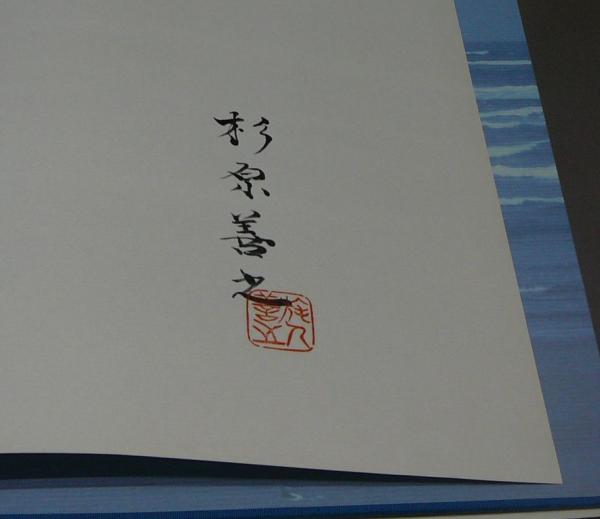 杉原善之